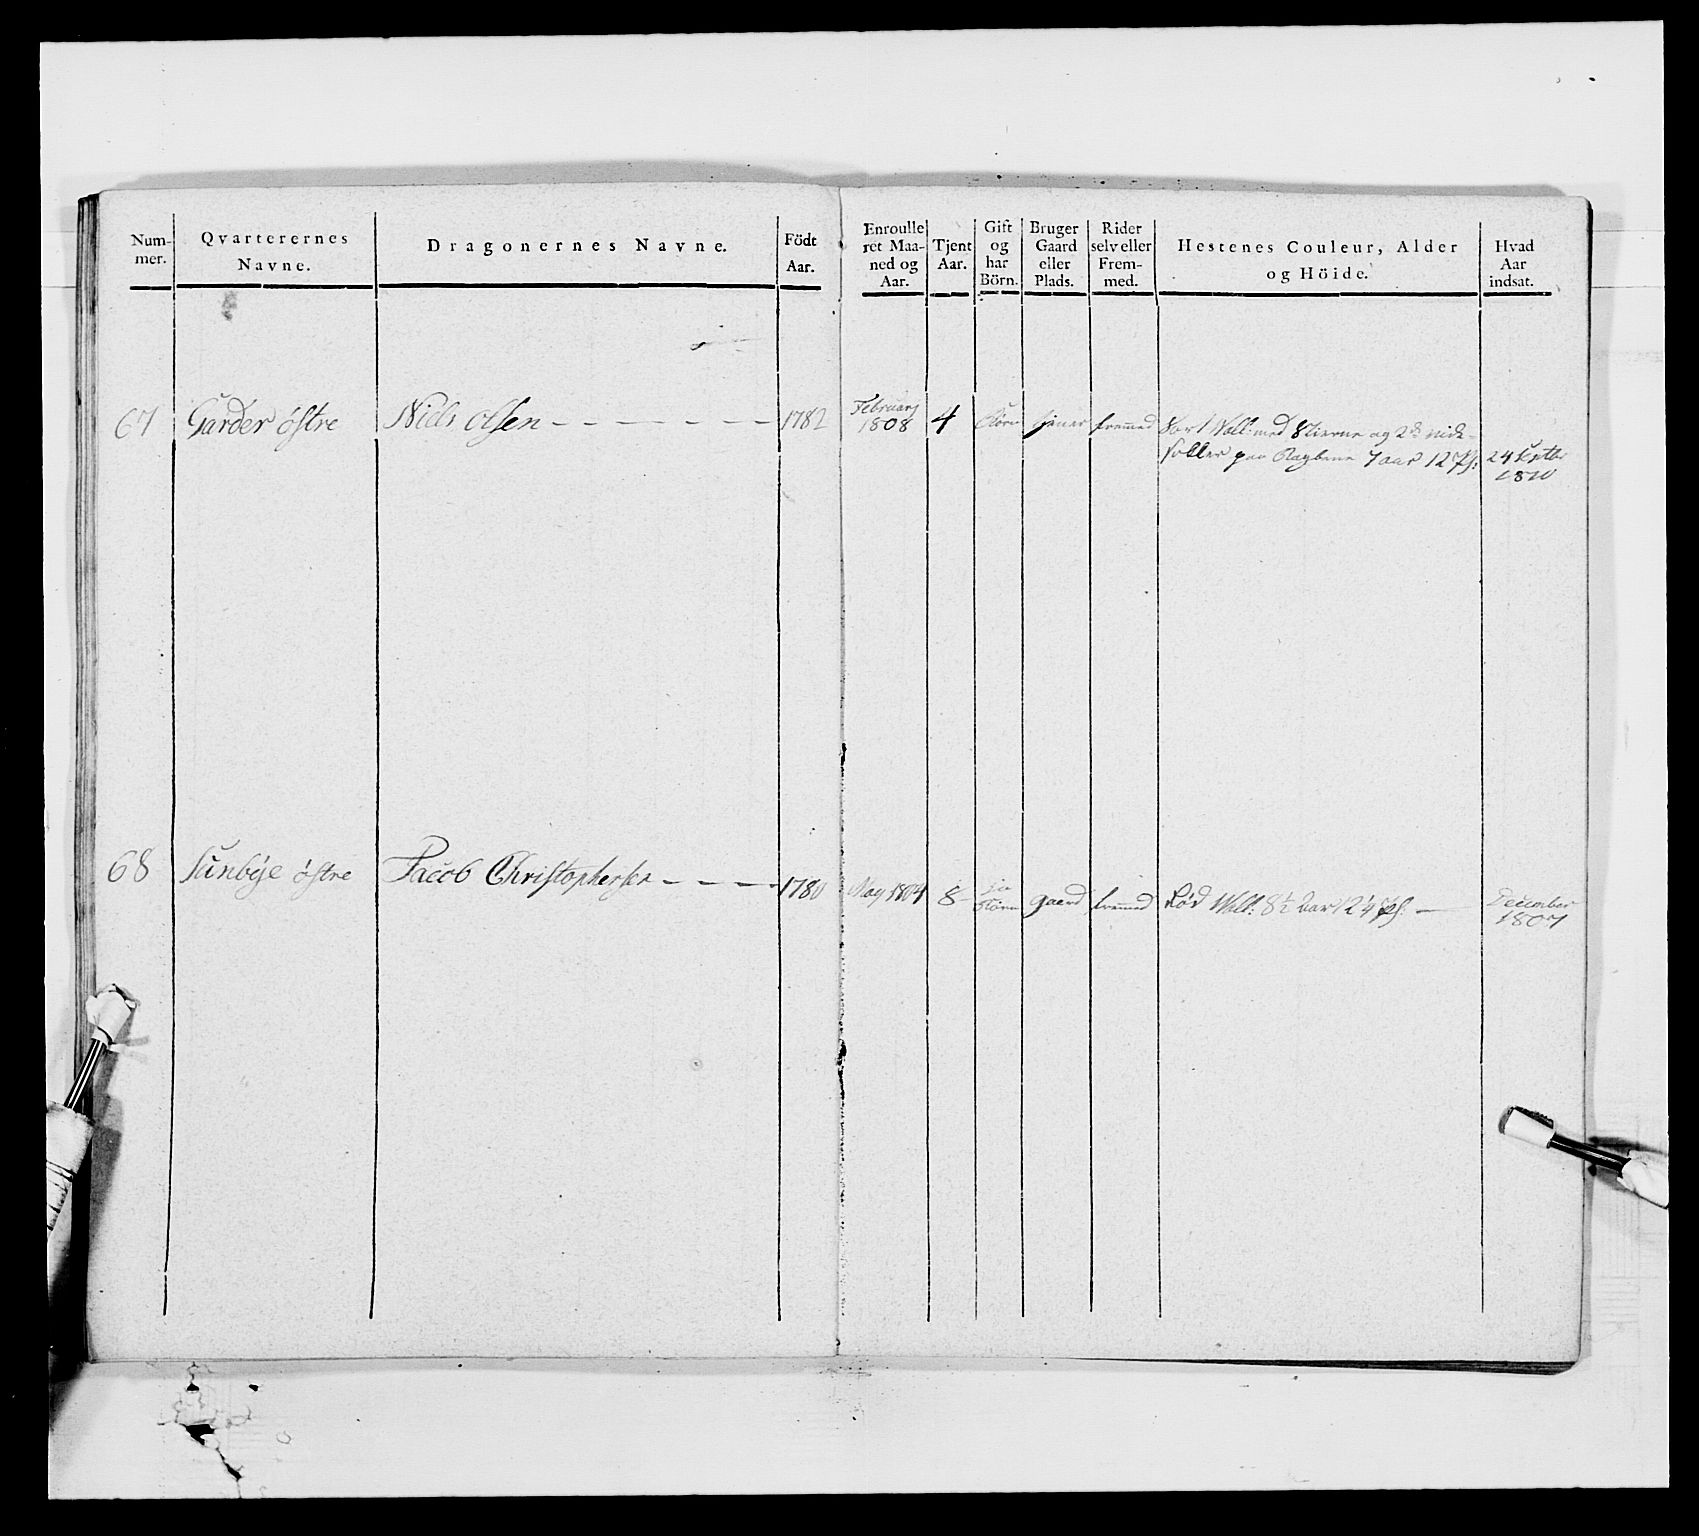 Num-
mer.
Qvarterernes
Navne.
Dragonernes Navne.
Födt
Aar.
Enroulle
ret Maa-
ned og
Aar.
Tjent
Aar.
Gift
og
har
Börn.
Bruger
Gaard
eller
Plads.
Rider
selv eller
Frem-
med.
Hestenes Couleur, Alder
og Höide.
Hvad
Aar
indsat.
67 Garder östre Niels Olsen - - - - - - - 1782
Februarj
1808
4
tjener fremmed
Sort Vall: med Stierne og 2de
paa 7 aar 12 
24
1810
68 Sunbÿe östre Jacob Christophersen - - - - 1780
May 1804 8
ja
Börn
gaard fremmed Rød Vall: 8½ aar 12¼ —
December
1807